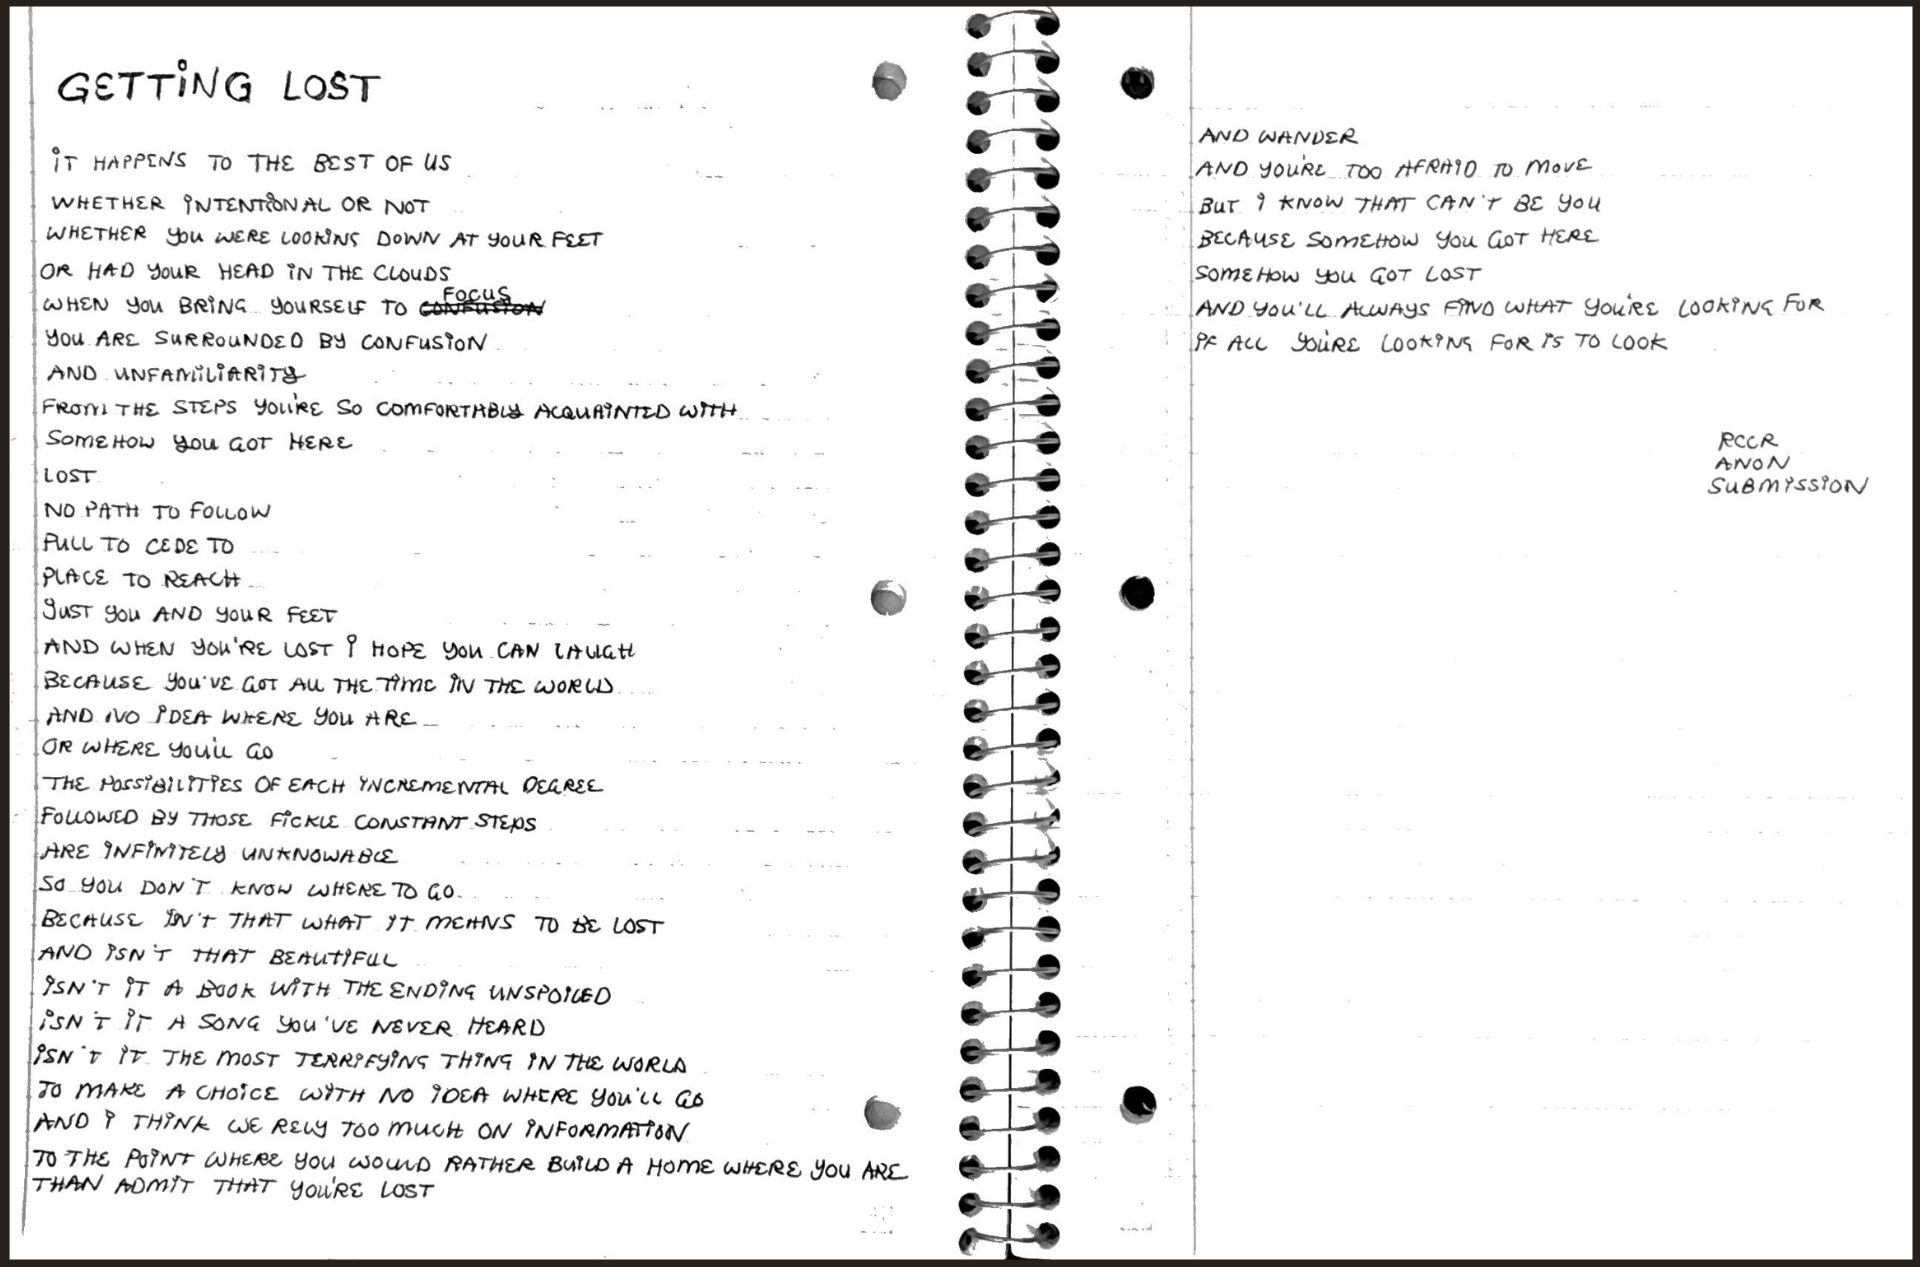 GETTING LOST
IT HAPPENS TO THE BEST OF US
WHETHER INTENTIONAL OR NOT
WHETHER YOU WERE LOOKING DOWN AT YOUR FEET
OR HAD YOUR HEAD IN THE CLOUDS
WHEN YOU BRING YOURSELF TO CONFUSION FOCUS
YOU ARE SURROUNDED BY CONFUSION
AND UNFAMILIARITY
FROM THE STEPS YOU'RE SO COMFORTABLY ACQUAINTED WITH
SOMEHOW YOU GOT HERE
LOST
NO PATH TO FOLLOW
PULL TO CEDE TO
PLACE TO REACH
JUST YOU AND YOUR FEET
AND WHEN YOU'RE LOST I HOPE YOU CAN LAUGH
BECAUSE YOU'VE GOT ALL THE TIME IN THE WORLD
AND NO IDEA WHERE YOU ARE
OR WHERE YOU'LL GO
THE POSSIBILITIES OF EACH INCREMENTAL DEGREE
FOLLOWED BY THOSE FICKLE CONSTANT STEPS
ARE INFINITELY UNKNOWABLE
SO YOU DON'T KNOW WHERE TO GO
BECAUSE ISN'T THAT WHAT IT MEANS TO BE LOST
AND ISN'T THAT BEAUTIFUL
ISN'T IT A BOOK WITH THE ENDING UNSPOILED
ISN'T IT A SONG YOU'VE NEVER HEARD
ISN'T IT THE MOST TERRIFYING THING IN THE WORLD
TO MAKE A CHOICE WITH NO IDEA WHERE YOU'LL GO
AND I THINK WE RELY TOO MUCH ON INFORMATION
TO THE POINT WHERE YOU WOULD RATHER BUILD A HOME WHERE YOU ARE
THAN ADMIT THAT YOU'RE LOST
AND WANDER
AND YOU'RE TOO AFRAID TO MOVE
BUT I KNOW THAT CAN'T BE YOU
BECAUSE SOMEHOW YOU GOT HERE
SOMEHOW YOU GOT LOST
AND YOU'LL ALWAYS FIND WHAT YOU'RE LOOKING FOR
IF ALL YOU'RE LOOKING FOR IS TO LOOK
RCCR
ANON
SUBMISSION